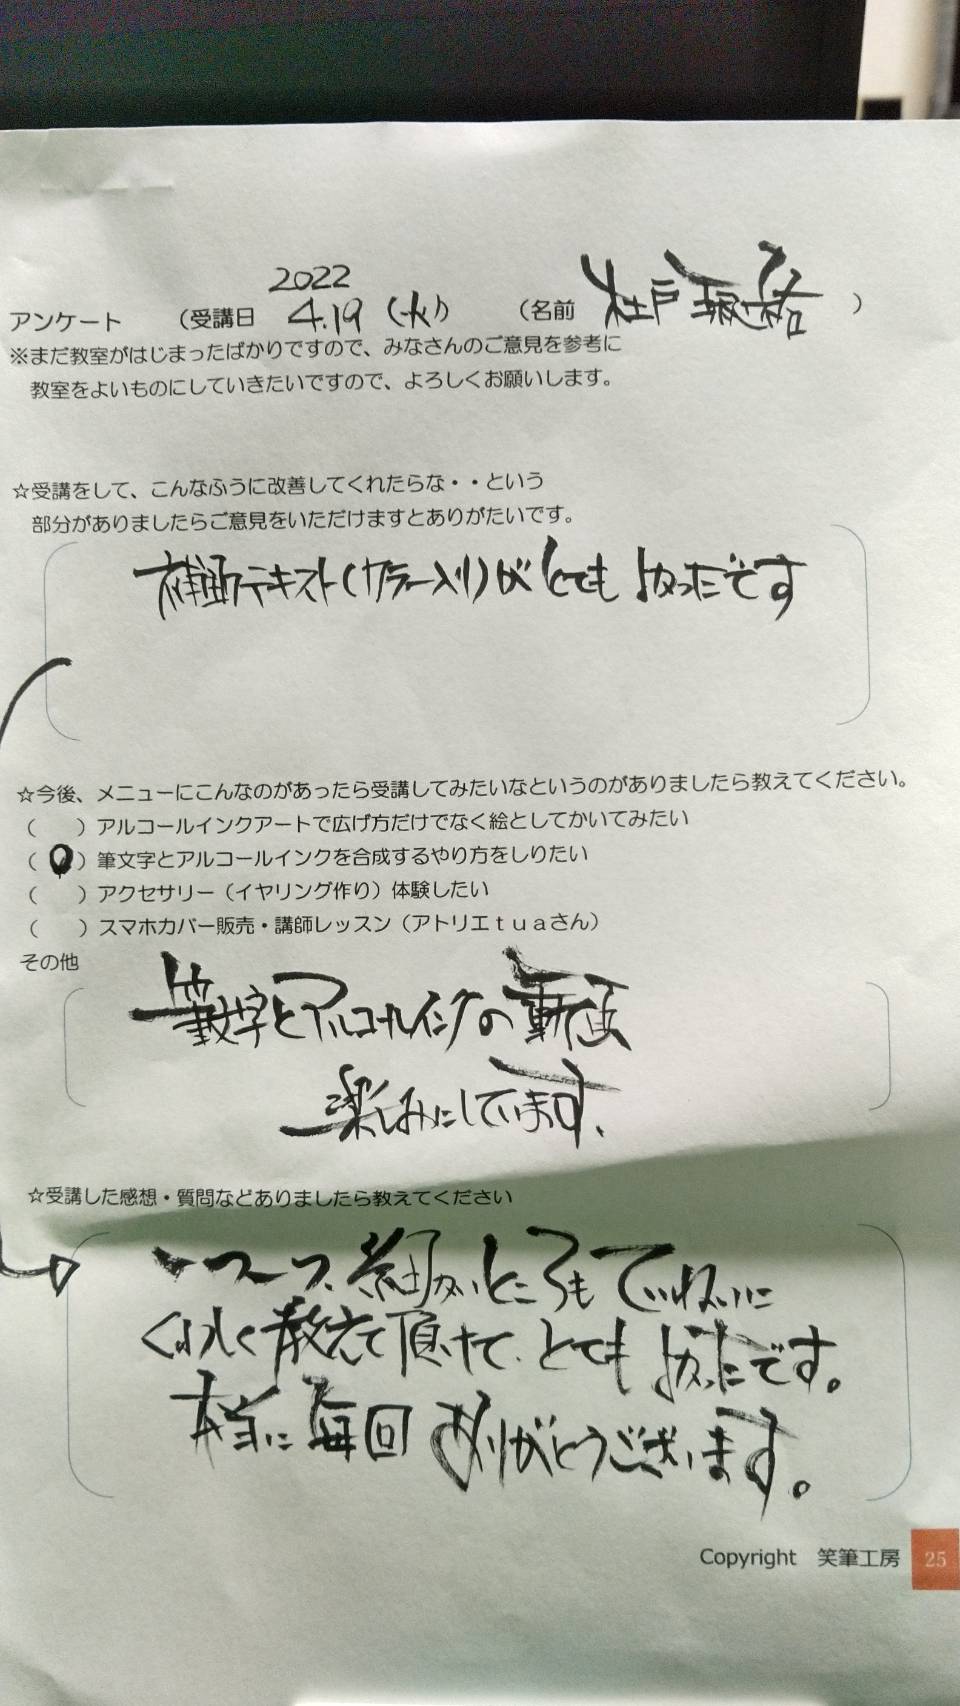 2022
アンケート　（受講日　4.19（火）　（名前　杜戸　　）
※まだ教室がはじまったばかりですので、みなさんのご意見を参考に
教室をよいものにしていきたいですので、よろしくお願いします。
☆受講をして、こんなふうに改善してくれたらな・・という
部分がありましたらご意見をいただけますとありがたいです。
補助テキスト（カラー入り）がとてもよかったです
☆今後、メニューにこんなのがあったら受講してみたいなというのがありましたら教えてください。
（　　）アルコールインクアートで広げ方だけでなく絵としてかいてみたい
（　　）筆文字とアルコールインクを合成するやり方をしりたい
（　　）アクセサリー（イヤリング作り）体験したい
（　　）スマホカバー販売・講師レッスン（アトリエｔｕａさん）
その他
筆文字とアルコールインクの動画
楽しみにしています、
☆受講した感想・質問などありましたら教えてください
一つ一つ、細かいところもていねいに
くわしく教えて頂けて、とてもよかったです。
本当に毎回ありがとうございます。
Copyright　笑筆工房　25